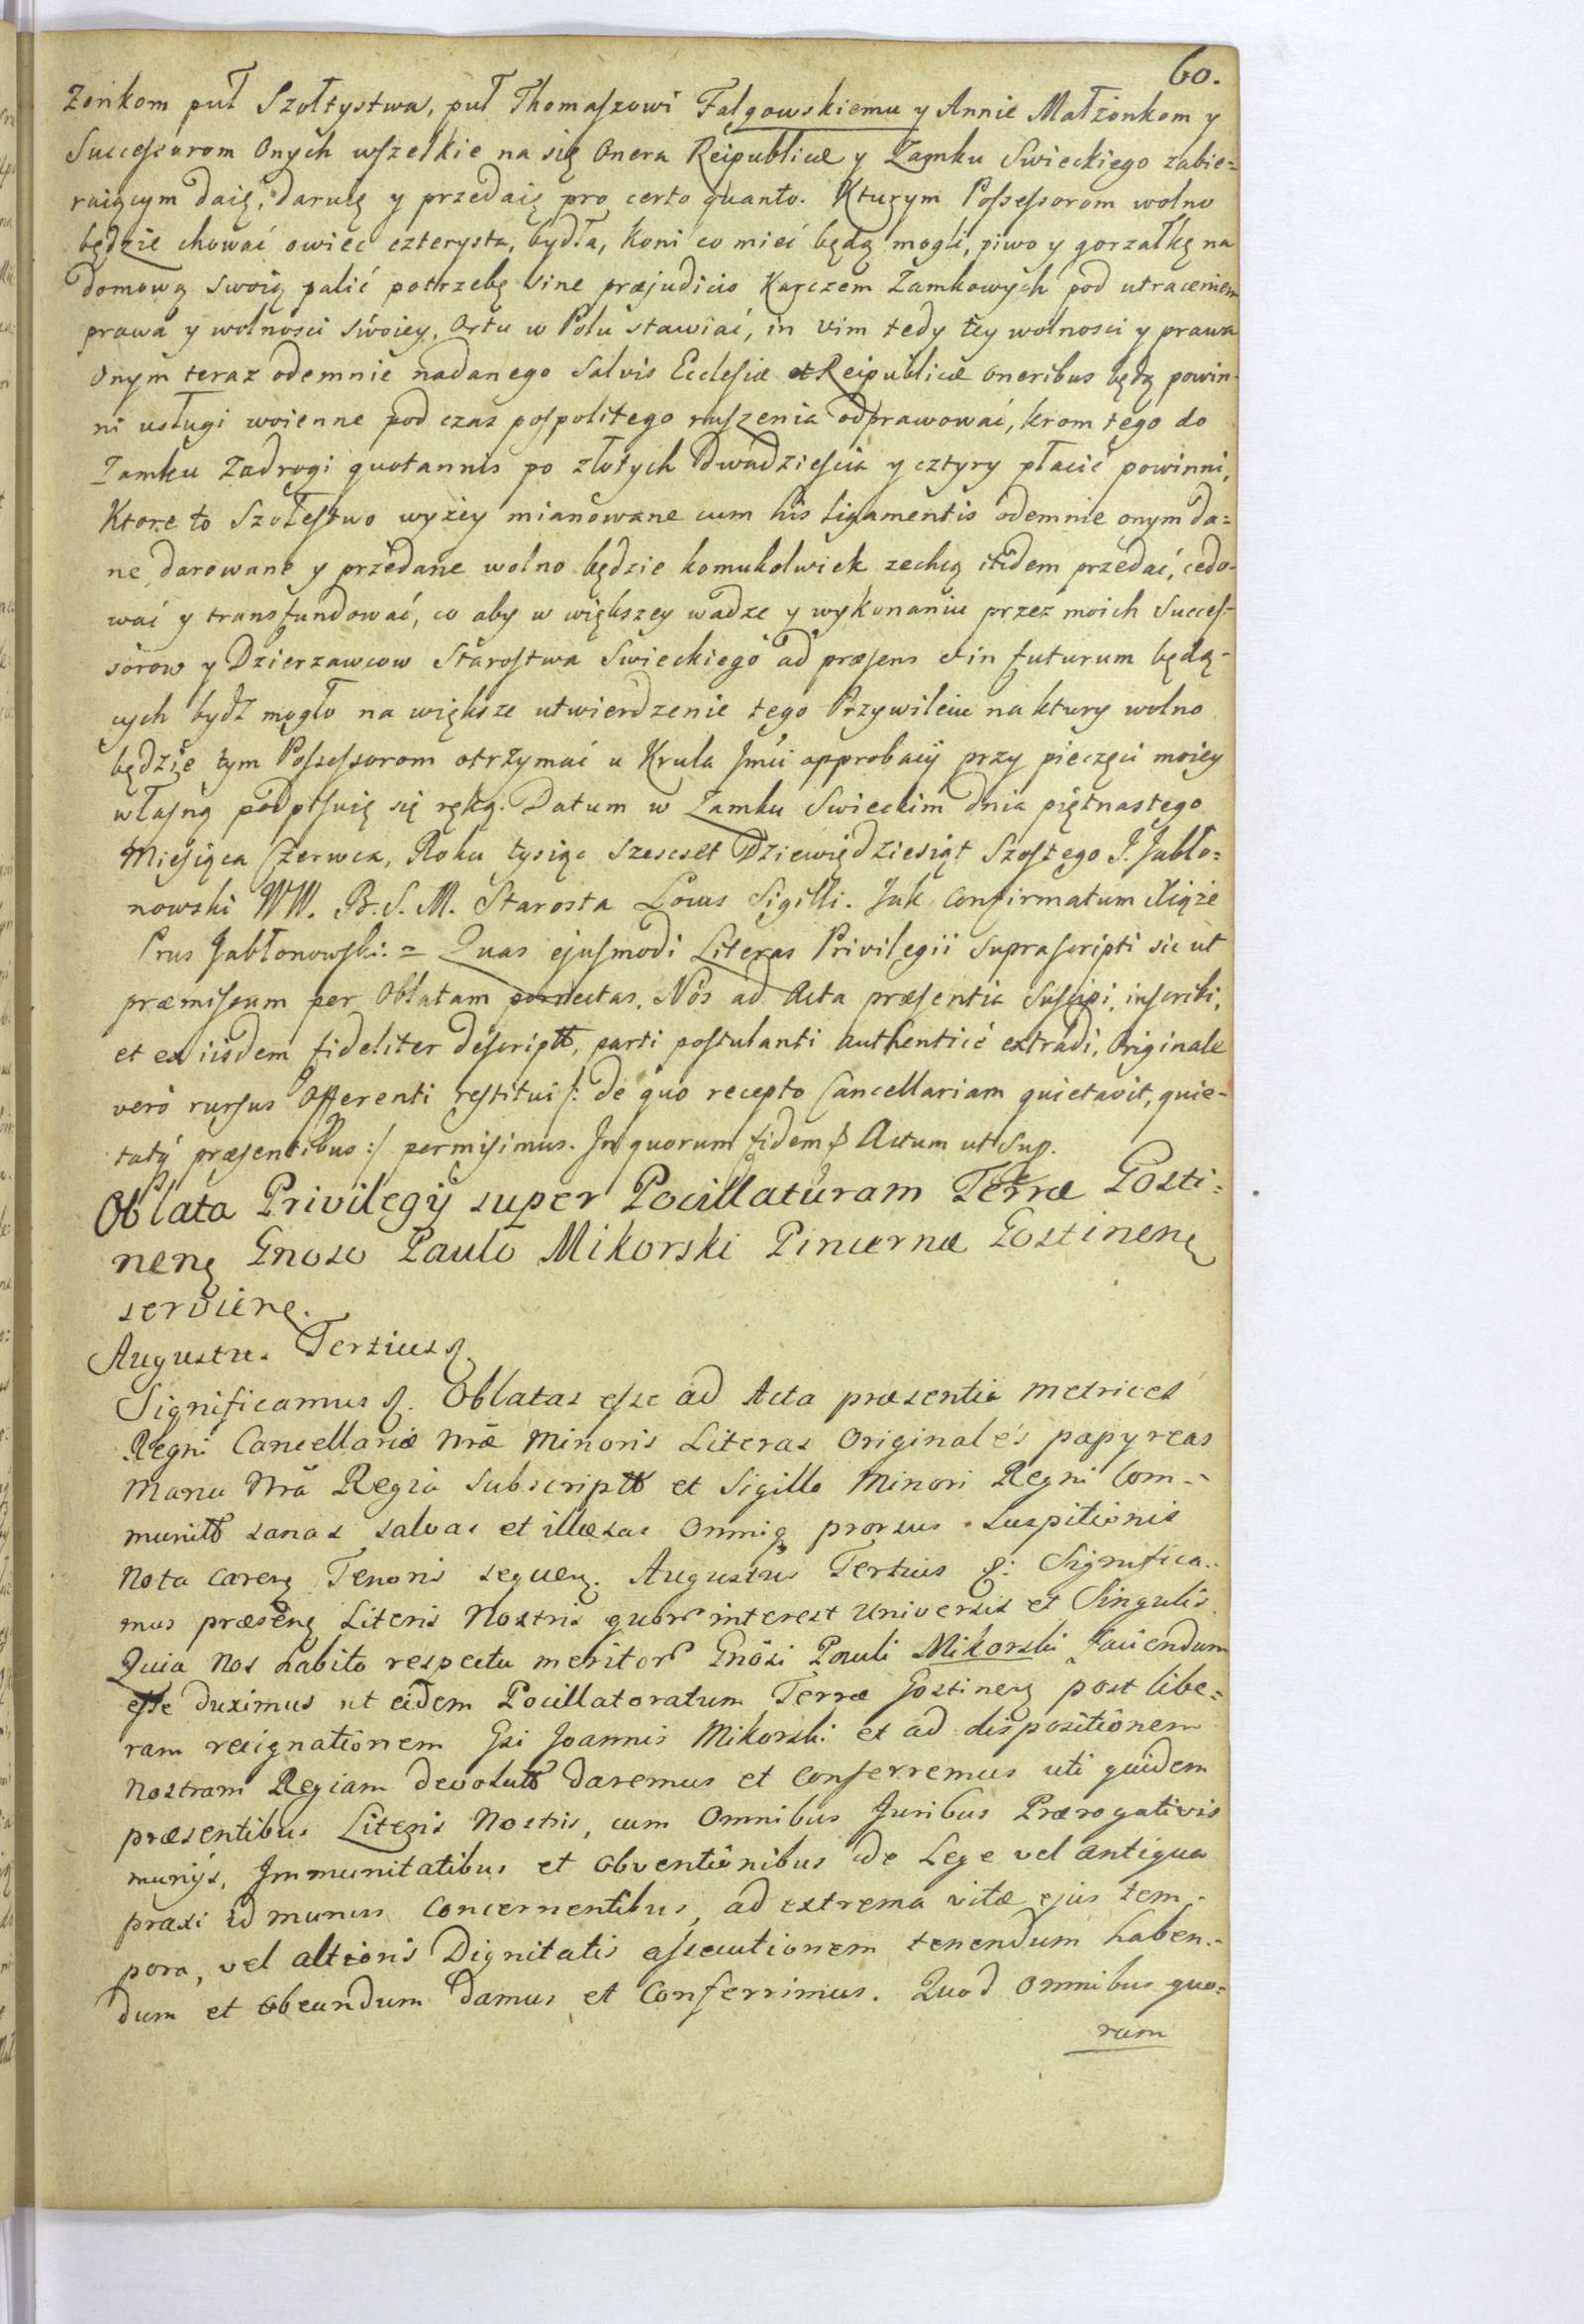 60.
Zonkom puł Szołtystwa, puł Thomaszowi Falgowskiemu y Annie Małżonkom y
Successorom Onych wszelkie na się Onera Reipublicæ y Zamku Swieckiego zabie=
raiącym daię, daruię y przedaię pro certo quanto. Kturym Possessorom wolno
będzie chować owiec czterysta, bydła, koni co mieć będą mogli, piwo y gorzałkę na
domową swoię palić potrzebę sine præjudicio Karczem Zamkowych pod utraceniem
prawa y wolnosci swoiey, Ostu w Polu stawiać, in vim tedy tey wolnosci y prawa
Onym teraz odemnie nadanego Salvis Ecclesiæ et Reipublicæ oneribus będą powin-
ni usługi woienne pod czas pospolitego ruszenia odprawować, krom tego do
Zamku Zadrogi quotannis po złotych Dwadziescia y cztyry płacić powinni,
Ktore to Szołestwo wyżey mianowane cum his ligamentis odemnie onym da=
ne, darowane y przedane wolno będzie komukolwiek zechcą itidem przedać, cedo-
wać y transfundować, co aby w większey wadze y wykonaniu przez moich Succes-
sorow y Dzierzawcow Starostwa Swieckiego ad præsens et in futurum będą-
cych bydź mogło na większe utwierdzenie tego Przywileiu na ktury wolno
będzie tym Possessorom otrzymać u Krula Jmći approbacij przy pieczęci moiey
własną podpisuię się ręką. Datum w Zamku Swieckim dnia piętnastego
Miesiąca Czerwca, Roku tysiąc szescset Dziewiędziesiąt Szostego J. Jabło=
nowski WW. B. S. M. Starosta Locus Sigilli. Jak Confirmatum Xiąże
Prus Jabłonowski: = Quas ejusmodi Literas Privilegii suprascripti sic ut
præmissum per Oblatam porrectas, Nos ad Acta præsentia suscipi, inscribi,
et ex iisdem fideliter descriptt, parti postulanti authenticè extradi, Originale
verò rursus Offerenti restitui /: de quo recepto Cancellariam quietavit, quie-
tatq præsentibus :/ permisimus. In quorum fidem &. Actum ut sup.
Oblata Privilegij super Pocillaturam Terræ Gosti=
neng Gnoso Paulo Mikorski Pincernæ Gostineng
serviens.
Augustus Tertius &.
Significamus &. Oblatas esse ad Acta præsentia metrices
Regni Cancellariæ Nræ Minoris Literas Originales papyreas
Manu Nrâ Regiâ subscriptt et Sigillo Minori Regni Com-
munitt sanas salvas et illæsas Omniq prorsus suspitionis
nota careng Tenoris sequeng. Augustus Tertius &: Significa-
mus præseng Literis Nostris quor interest Universis et Singulis
Quia Nos habito respectu meritor Gnosi Pauli Mikorski faciendum
esse duximus ut eidem Pocillatoratum Terræ Gostineng post libe=
ram resignationem Gsi Joannis Mikorski et ad dispositionem
Nostram Regiam devolutt daremus et conferremus uti quidem
præsentibus Literis Nostris, cum Omnibus Juribus Prærogativis
munijs, Immunitatibus et obventionibus de Lege vel antiqua
praxi id munus concernentibus, ad extrema vitæ ejus tem-
pora, vel altioris Dignitatis assecutionem tenendum haben-
dum et obeundum damus et Conferrimus. Quod Omnibus quo=
rum